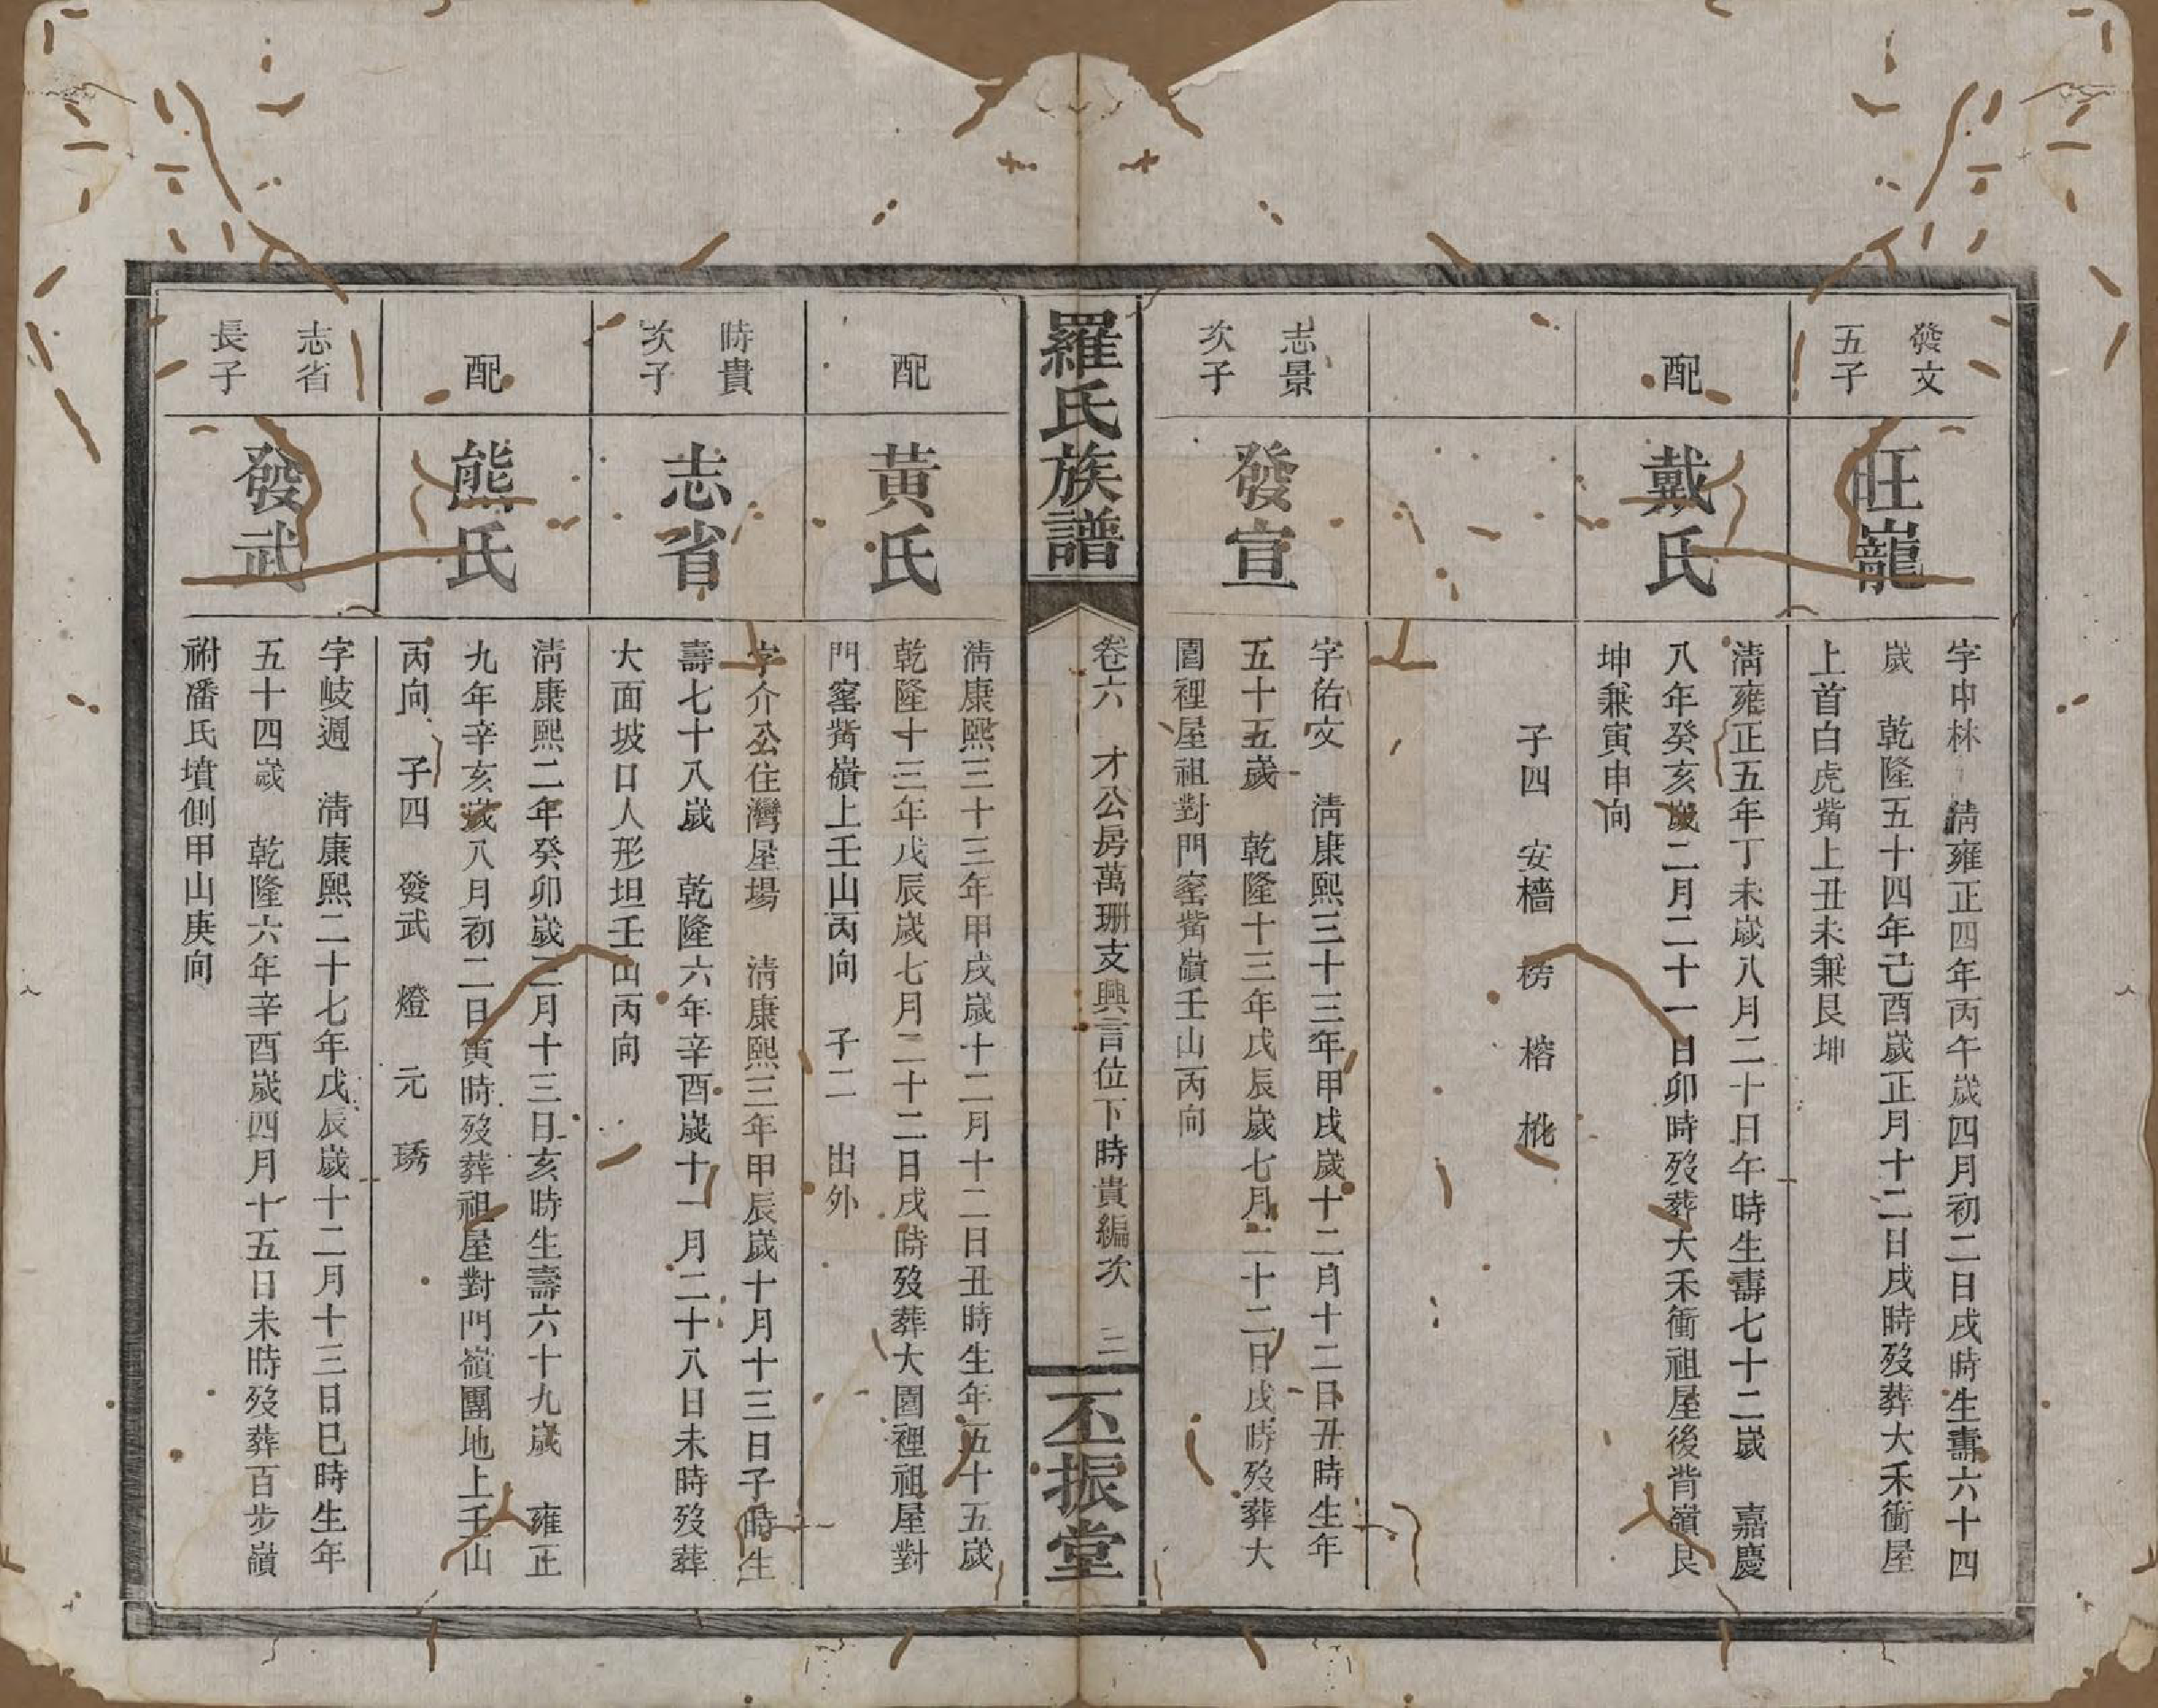 發文
五子
旺巃
字申林　清雍正四年丙午歲四月初二日戌時生壽六十四
歲　乾隆五十四年己酉歲正月十二日戌時歿葬大禾衝屋
上首白虎觜上丑未兼艮坤
配
戴氏
清雍正五年丁未歲八月二十日午時生壽七十二歲　嘉慶
八年癸亥歲二月二十一日卯時歿葬大禾衝祖屋後背嶺艮
坤兼寅申向
子四　安檣　榜　榕　桃
志景
次子
發宣
字佑文　清康熙三十三年甲戌歲十二月十二日丑時生年
五十五歲　乾隆十三年戊辰歲七月二十二日戌時歿葬大
園裡屋祖對門窰觜嶺壬山丙向
羅氏族譜
卷六　才公房萬珊支興言位下時貴編次　三
丕振堂
配
黃氏
清康熙三十三年甲戌歲十二月十二日丑時生年五十五歲
乾隆十三年戊辰歲七月二十二日戌時歿葬大園裡祖屋對
門窰觜嶺上壬山丙向　子二　出外
時貴
次子
志省
字介公住灣屋場　清康熙三年甲辰歲十月十三日子時生
壽七十八歲　乾隆六年辛酉歲十一月二十八日未時歿葬
大面坡口人形坦壬山丙向
配
熊氏
清康熙二年癸卯歲三月十三日亥時生壽六十九歲　雍正
九年辛亥歲八月初二日寅時歿葬祖屋對門嶺團地上壬山
丙向　子四　發武　燈　元　琇
志省
長子
發武
字岐週　清康熙二十七年戊辰歲十二月十三日巳時生年
五十四歲　乾隆六年辛酉歲四月十五日未時歿葬百步嶺
祔潘氏墳側甲山庚向